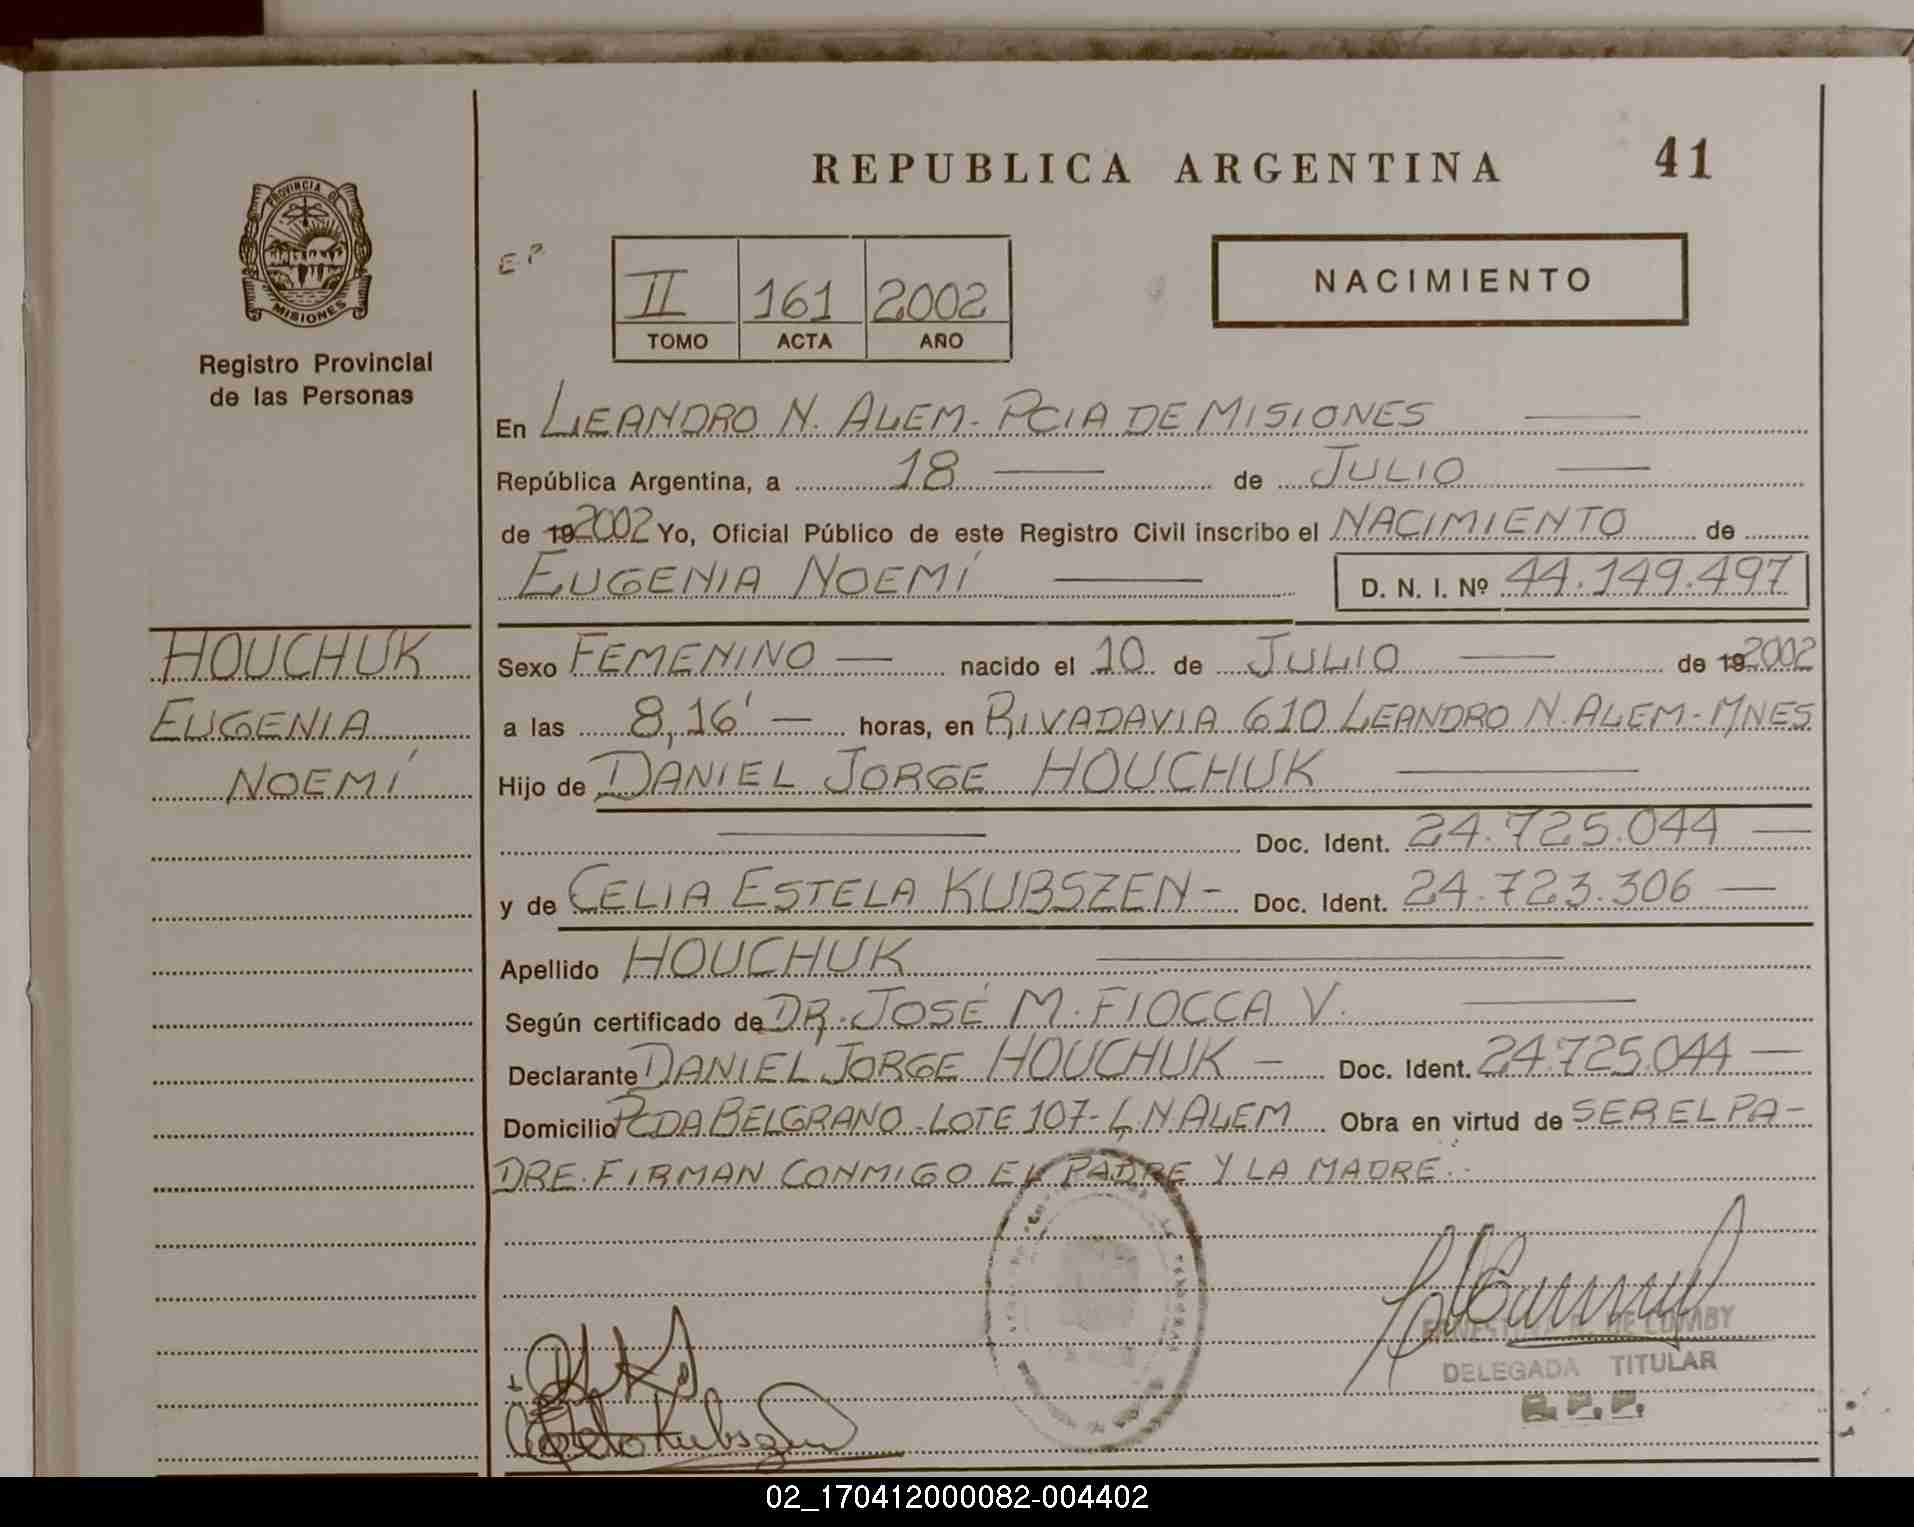 REPUBLICA ARGENTINA 41
PROVINCIA DE
MISIONES
Registro Provincial
de las Personas
E.P
II 161 2002
TOMO ACTA AÑO
NACIMIENTO
En LEANDRO N. ALEM - PCIA DE MISIONES
República Argentina, a 18 de JULIO
de 19 2002 Yo, Oficial Público de este Registro Civil inscribo el NACIMIENTO de
EUGENIA NOEMÍ D. N. I. Nº 44.149.497
HOUCHUK
EUGENIA
NOEMÍ
Sexo FEMENINO — nacido el 10 de JULIO — de 19 2002
a las 8,16' — horas, en RIVADAVIA 610 LEANDRO N. ALEM - MNES
Hijo de DANIEL JORGE HOUCHUK
Doc. Ident. 24.725.044 —
y de CELIA ESTELA KUBSZEN - Doc. Ident. 24.723.306 —
Apellido HOUCHUK
Según certificado de DR. JOSÉ M. FIOCCA V.
Declarante DANIEL JORGE HOUCHUK - Doc. Ident. 24.725.044 —
Domicilio PCDA BELGRANO - LOTE 107 - L.N ALEM Obra en virtud de SER EL PA-
DRE. FIRMAN CONMIGO EL PADRE Y LA MADRE.-
DE LUMBY
DELEGADA TITULAR
R.P.P.
02_170412000082-004402